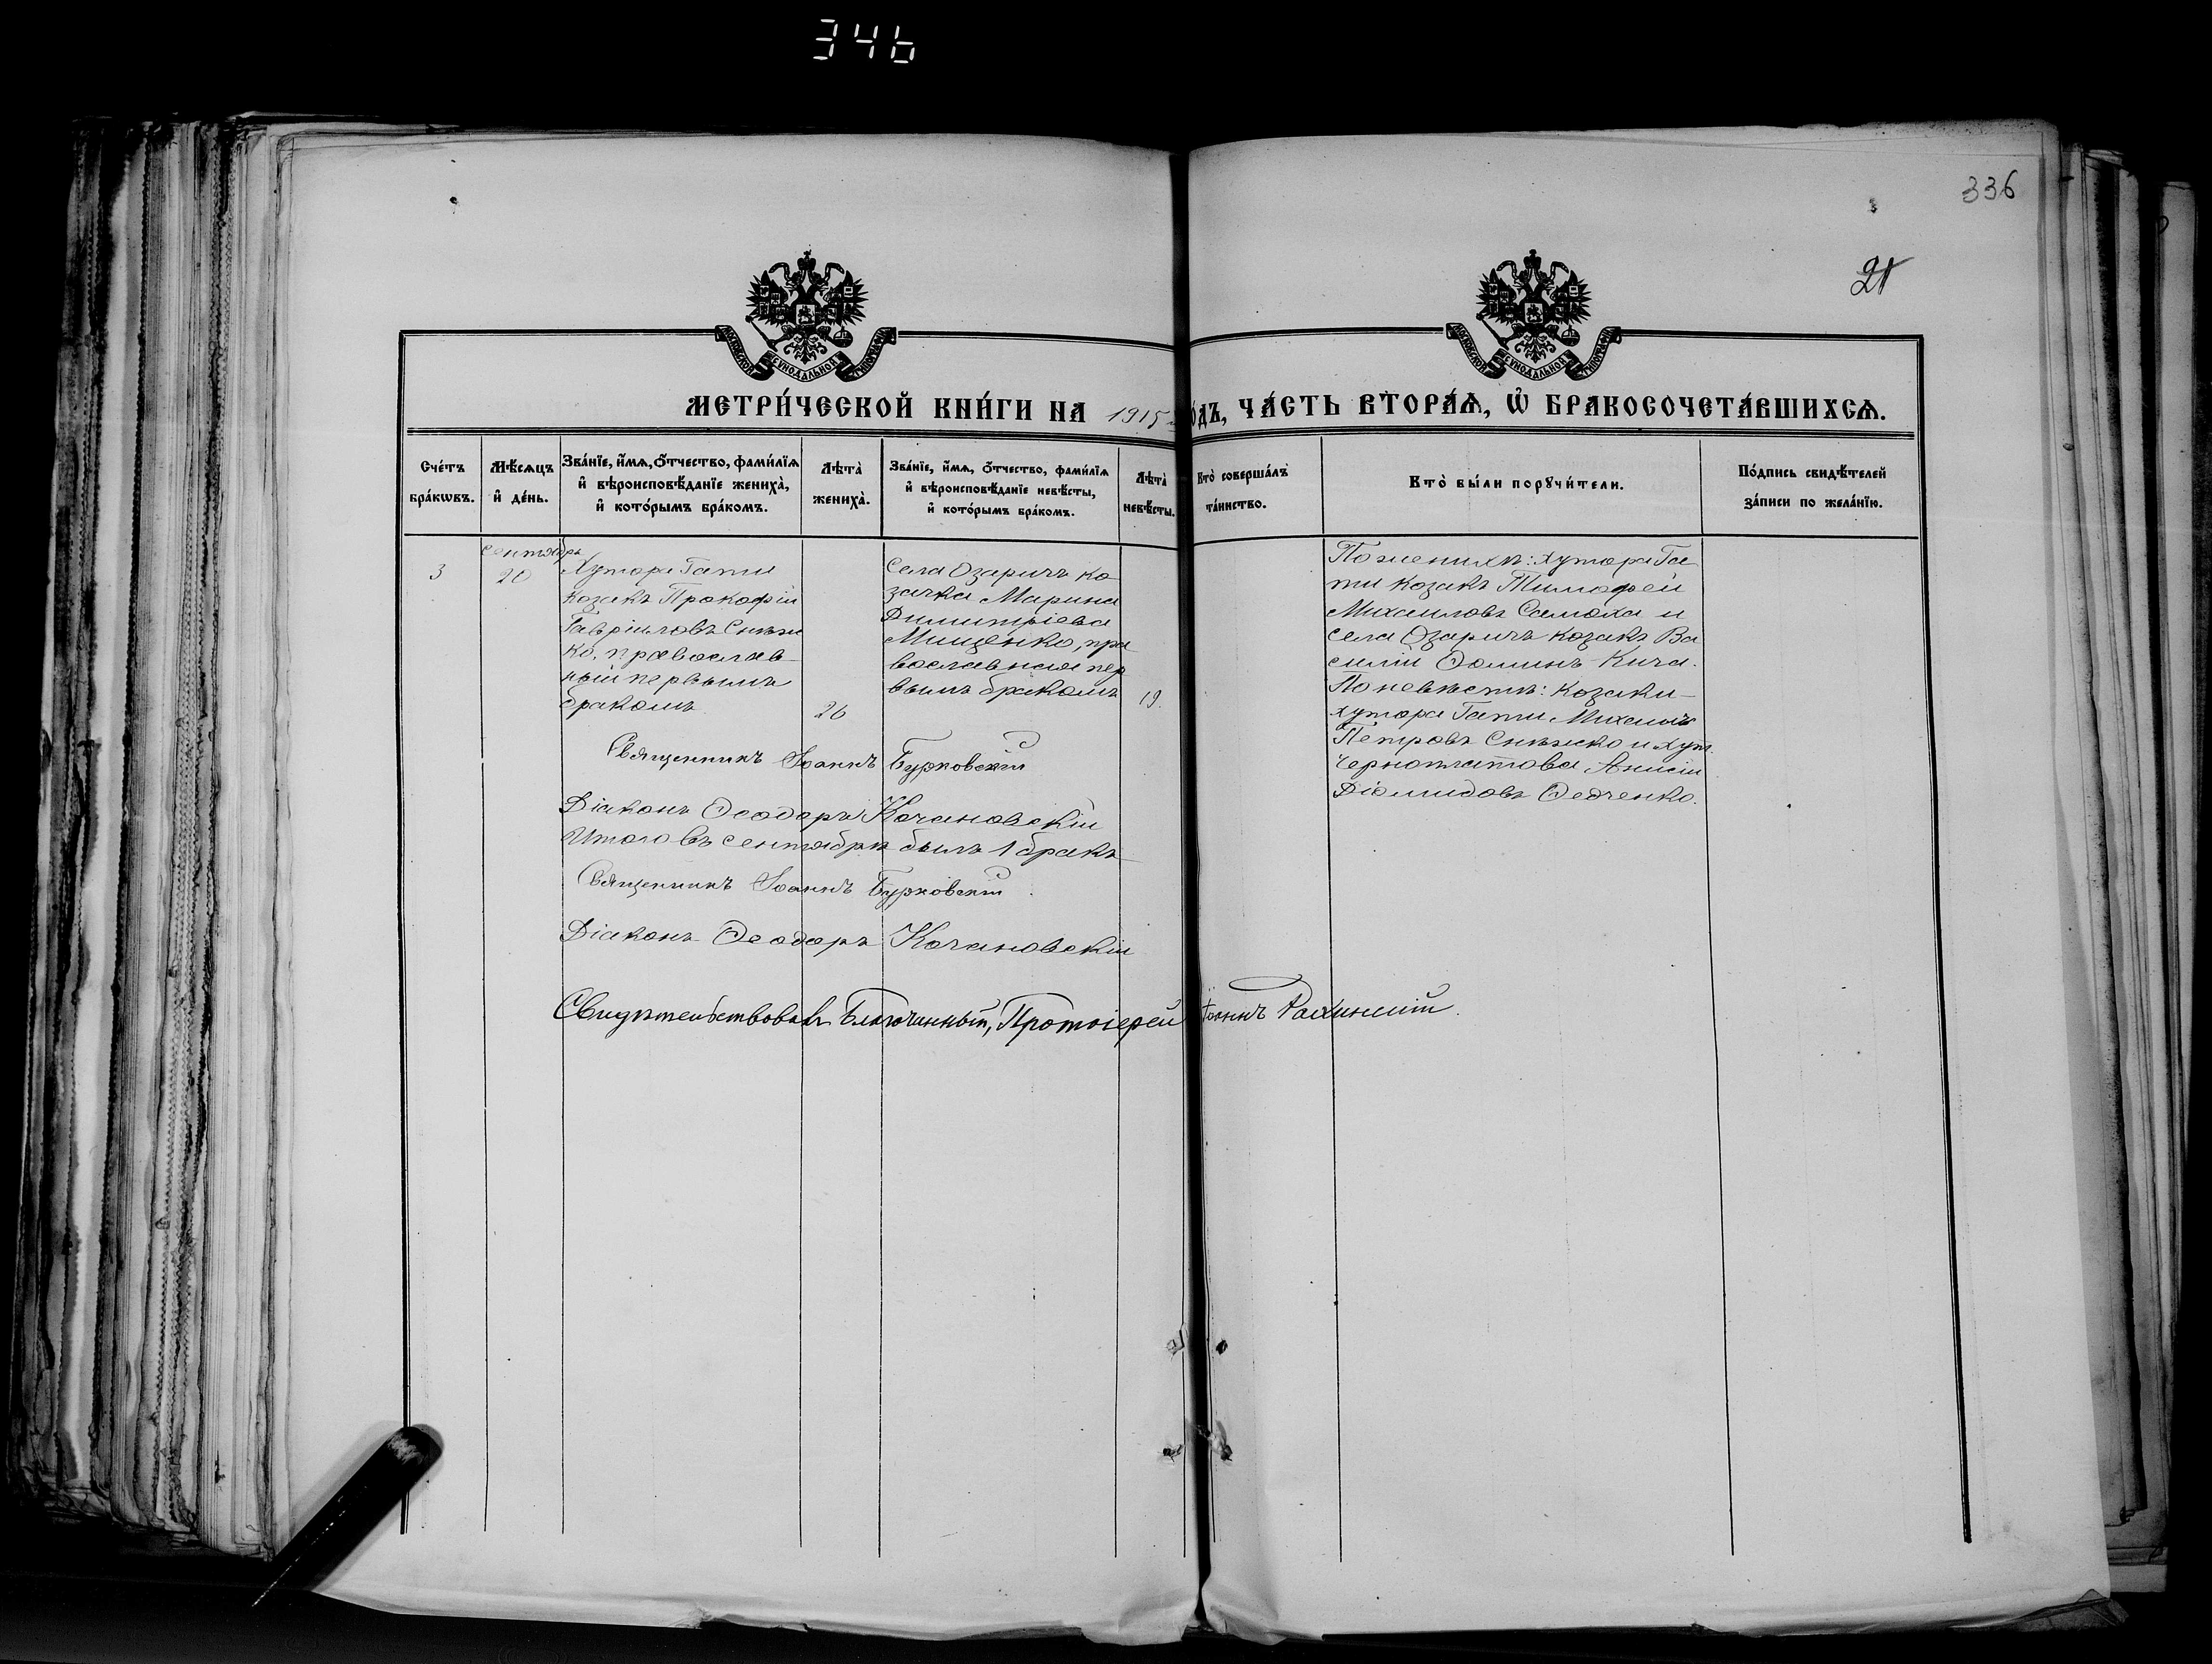 346
336
21
МОСКОВСКОЙ СѴНОДАЛЬНОЙ ТИПОГРАФІИ
МОСКОВСКОЙ СѴНОДАЛЬНОЙ ТИПОГРАФІИ
МЕТРИ́ЧЕСКОЙ КНИ́ГИ НА 1915 ГО́ДЪ, ЧА́СТЬ ВТОРА́Ѧ, Ѡ҆ БРАКОСОЧЕТА́ВШИХСѦ.
Сче́тъ
бра́кѡвъ.
Мѣ́сѧцъ
и҆ де́нь.
Зва́нїе, и҆́мѧ, ѻ҆́тчество, фами́лїѧ
и҆ вѣроисповѣ́данїе жениха̀,
и҆ кото́рымъ бра́комъ.
Лѣта̀
жениха̀.
Зва́нїе, и҆́мѧ, ѻ҆́тчество, фами́лїѧ
и҆ вѣроисповѣ́данїе невѣ́сты,
и҆ кото́рымъ бра́комъ.
Лѣта̀
невѣ́сты.
Кто̀ соверша́лъ
та́инство.
Кто̀ бы́ли порꙋчи́тели.
По́дпись свидѣ́телей
за́писи по жела́нїю.
3
Сентябрь
20
Хутора Гати
козакъ Прокофій
Гавріиловъ Снѣж
ко, православ-
ный первымъ
бракомъ
26
Села Озаричъ ко
зачка Марина
Димитріева
Мищенко, пра
вославная пер
вымъ бракомъ
19.
По женихѣ: хутора Га
ти козакъ Тимофей
Михаиловъ Самоха и
села Озаричъ козакъ Ва
силій Ѳоминъ Кича.
По невѣстѣ: козаки-
хутора Гати Михаилъ
Петровъ Снѣжко и хут.
Черноплатова Анисій
Діомидовъ Ѳедченко.
Священникъ Іоаннъ Бурковскій
Діаконъ Ѳеодоръ Кочановскій
Итого въ сентябрѣ былъ 1 бракъ
Священникъ Іоаннъ Бурковскій.
Діаконъ Ѳеодоръ Кочановскій
Свидѣтельствовалъ Благочинный, Протоіерей Іоаннъ